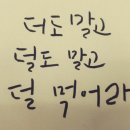 더도 말고
덜도 말고
덜 먹어라